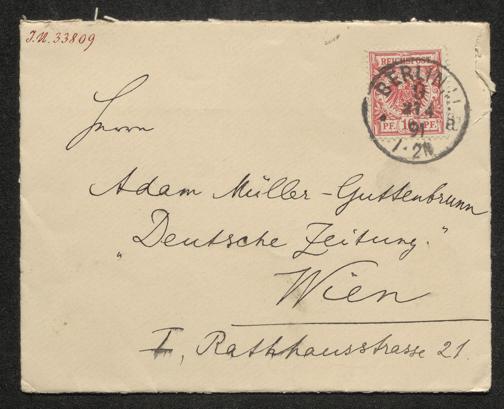 J.N. 33809
REICHSPOST
PF. 10 PF.
BERLIN
9
91
1-2N
Herrn
Adam Müller-Guttenbrunn
„Deutsche Zeitung."
Wien
I, Rathhausstrasse 21.